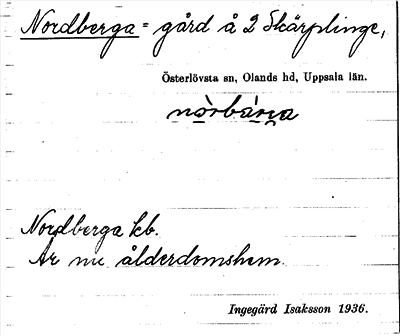 Nordberga = gård å 2 Skärplinge,
Österlövsta sn, Olands hd, Uppsala län.
nòrbárıa
Nordberga kb.
Är nu ålderdomshem.
Ingegärd Isaksson 1936.